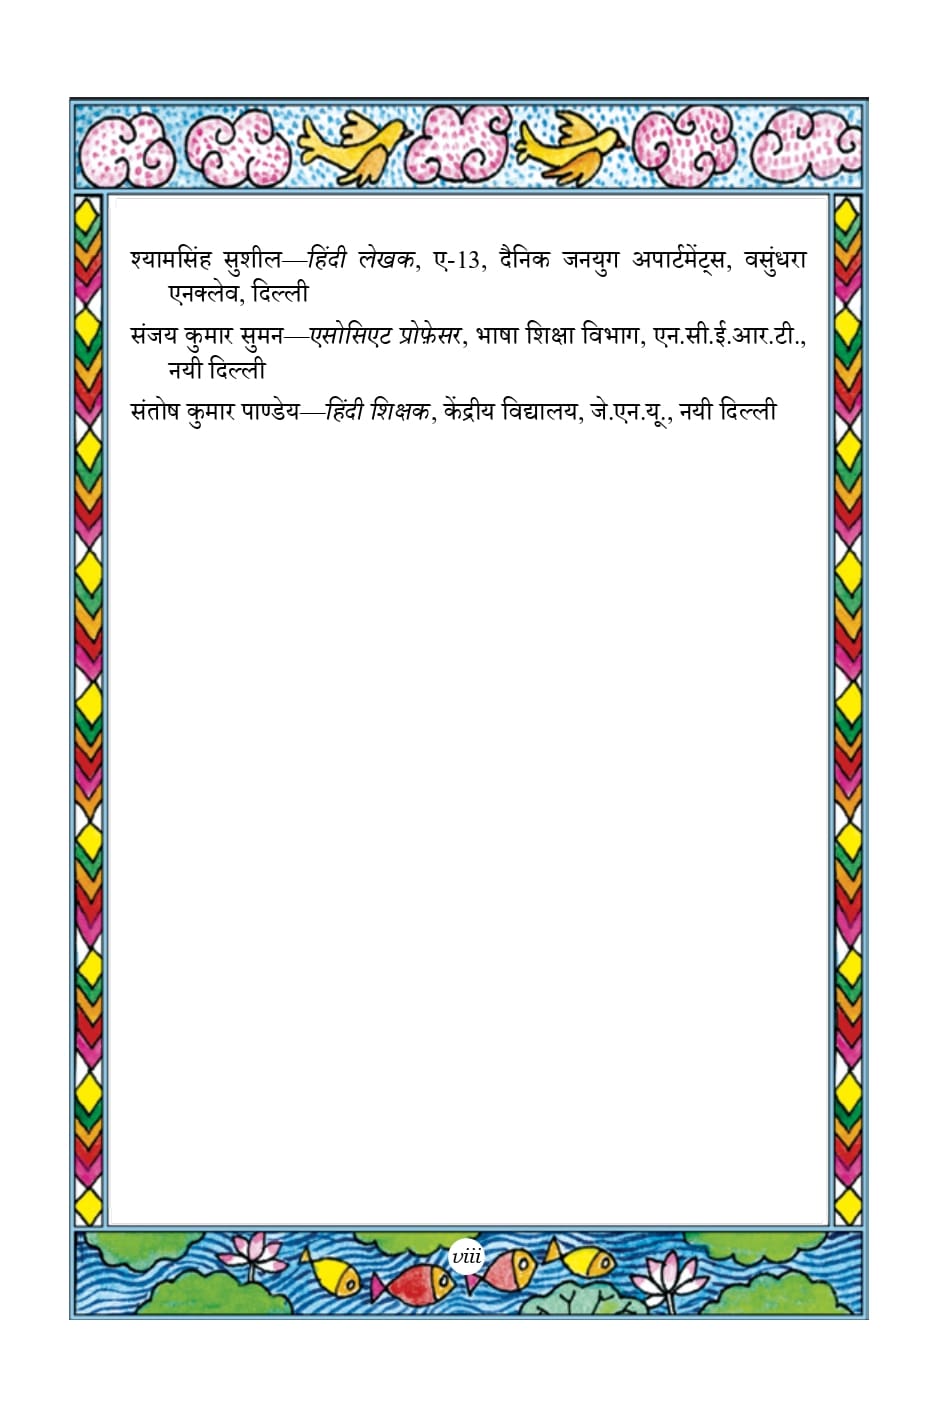 श्यामसिंह सुशील—हिंदी लेखक, ए-13, दैनिक जनयुग अपार्टमेंट्स, वसुंधरा
एनक्लेव, दिल्ली
संजय कुमार सुमन—एसोसिएट प्रोफ़ेसर, भाषा शिक्षा विभाग, एन.सी.ई.आर.टी.,
नयी दिल्ली
संतोष कुमार पाण्डेय—हिंदी शिक्षक, केंद्रीय विद्यालय, जे.एन.यू., नयी दिल्ली
viii